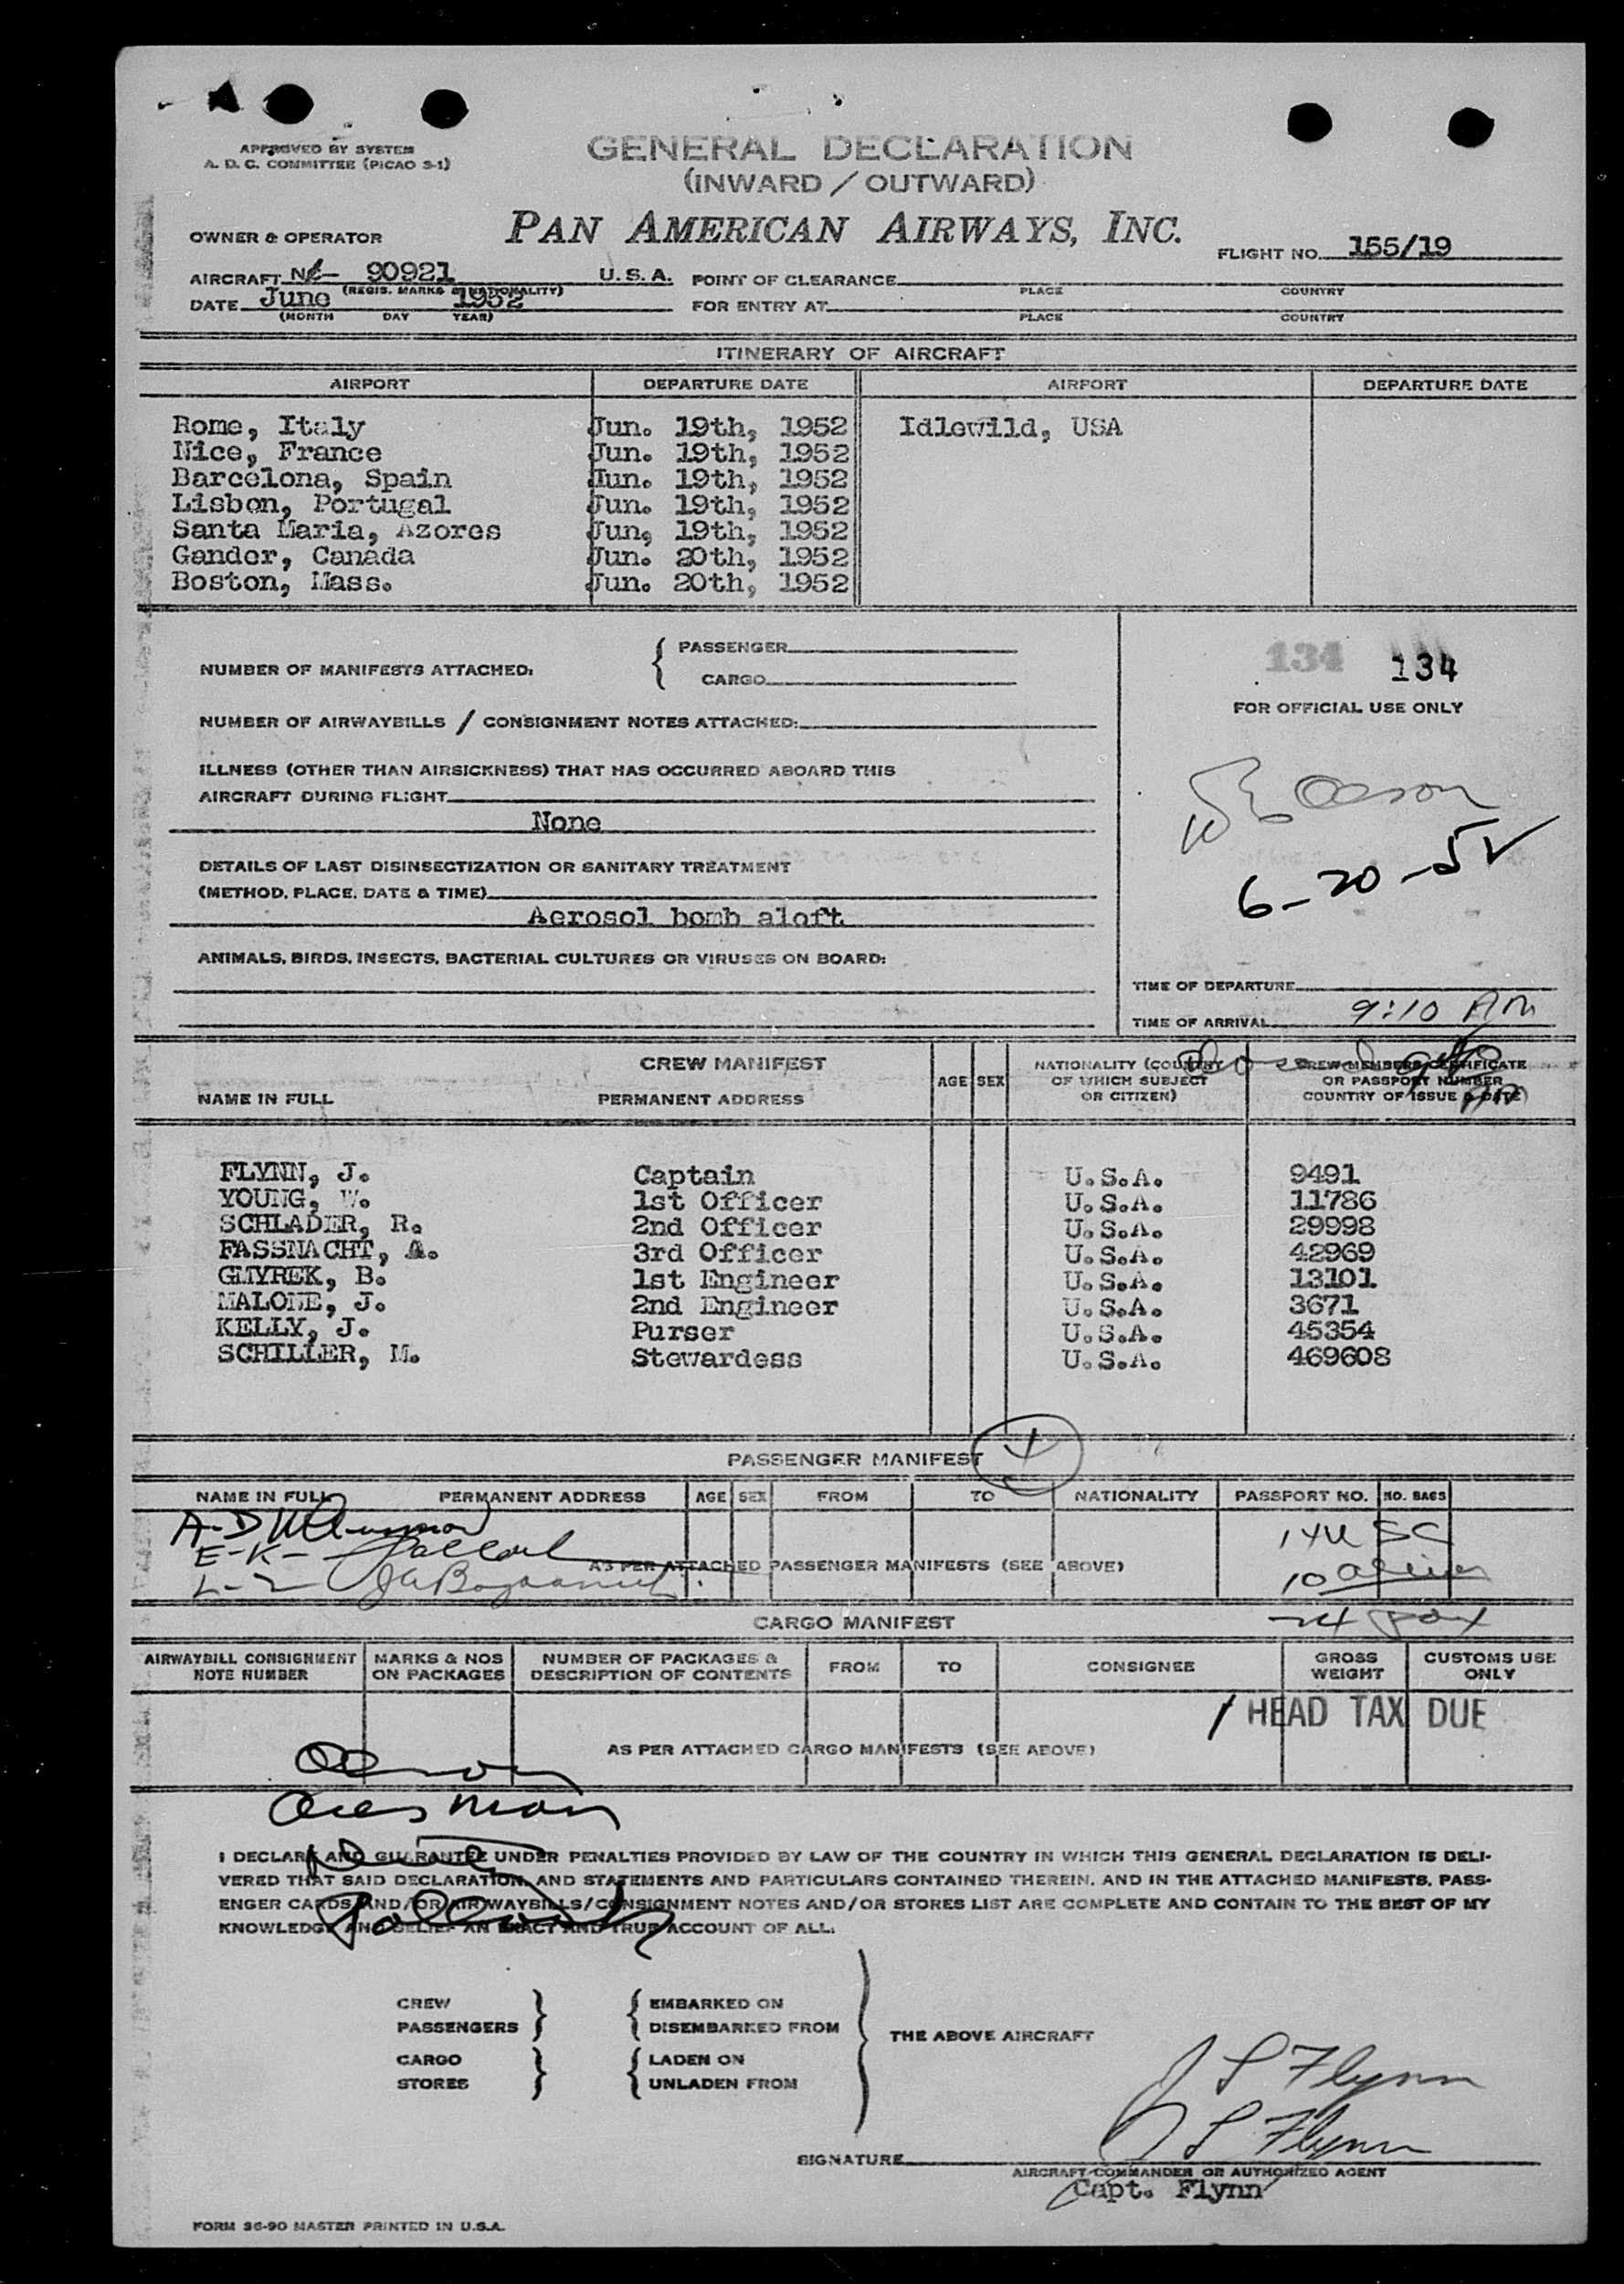 APPROVED BY SYSTEM
A. D. C. COMMITTEE (PICAO 3-1)
GENERAL DECLARATION
(INWARD / OUTWARD)
OWNER & OPERATOR PAN AMERICAN AIRWAYS, INC.
FLIGHT NO. 155/19
AIRCRAFT 90921 U. S. A. POINT OF CLEARANCE
(REGIS. MARKS & NATIONALITY) PLACE COUNTRY
DATE June 1952 FOR ENTRY AT
(MONTH DAY YEAR) PLACE COUNTRY
ITINERARY OF AIRCRAFT
AIRPORT DEPARTURE DATE AIRPORT DEPARTURE DATE
Rome, Italy Jun. 19th, 1952 Idlewild, USA
Nice, France Jun. 19th, 1952
Barcelona, Spain Jun. 19th, 1952
Lisbon, Portugal Jun. 19th, 1952
Santa Maria, Azores Jun, 19th, 1952
Gander, Canada Jun. 20th, 1952
Boston, Mass. Jun. 20th, 1952
NUMBER OF MANIFESTS ATTACHED: { PASSENGER
CARGO
134 134
FOR OFFICIAL USE ONLY
NUMBER OF AIRWAYBILLS / CONSIGNMENT NOTES ATTACHED:
ILLNESS (OTHER THAN AIRSICKNESS) THAT HAS OCCURRED ABOARD THIS
AIRCRAFT DURING FLIGHT
None
6-20-52
DETAILS OF LAST DISINSECTIZATION OR SANITARY TREATMENT
(METHOD, PLACE, DATE & TIME)
Aerosol bomb aloft
ANIMALS, BIRDS, INSECTS, BACTERIAL CULTURES OR VIRUSES ON BOARD:
TIME OF DEPARTURE
TIME OF ARRIVAL 9:10 AM
CREW MANIFEST
NAME IN FULL PERMANENT ADDRESS AGE SEX NATIONALITY (COUNTRY OF WHICH SUBJECT OR CITIZEN) CREW MEMBERS CERTIFICATE OR PASSPORT NUMBER COUNTRY OF ISSUE & DATE
FLYNN, J. Captain U.S.A. 9491
YOUNG, W. 1st Officer U.S.A. 11786
SCHLADER, R. 2nd Officer U.S.A. 29998
FASSNACHT, A. 3rd Officer U.S.A. 42969
GMYREK, B. 1st Engineer U.S.A. 13101
MALONE, J. 2nd Engineer U.S.A. 3671
KELLY, J. Purser U.S.A. 45354
SCHILLER, M. Stewardess U.S.A. 469608
PASSENGER MANIFEST
NAME IN FULL PERMANENT ADDRESS AGE SEX FROM TO NATIONALITY PASSPORT NO. NO. BAGS
A-D
E-K-
L-Z
AS PER ATTACHED PASSENGER MANIFESTS (SEE ABOVE)
14 USC
10 aliens
24 pax
CARGO MANIFEST
AIRWAYBILL CONSIGNMENT NOTE NUMBER MARKS & NOS ON PACKAGES NUMBER OF PACKAGES & DESCRIPTION OF CONTENTS FROM TO CONSIGNEE GROSS WEIGHT CUSTOMS USE ONLY
1 HEAD TAX DUE
AS PER ATTACHED CARGO MANIFESTS (SEE ABOVE)
I DECLARE AND GUARANTEE UNDER PENALTIES PROVIDED BY LAW OF THE COUNTRY IN WHICH THIS GENERAL DECLARATION IS DELI-
VERED THAT SAID DECLARATION, AND STATEMENTS AND PARTICULARS CONTAINED THEREIN, AND IN THE ATTACHED MANIFESTS, PASS-
ENGER CARDS AND/OR AIRWAYBILLS/CONSIGNMENT NOTES AND/OR STORES LIST ARE COMPLETE AND CONTAIN TO THE BEST OF MY
KNOWLEDGE AND BELIEF AN EXACT AND TRUE ACCOUNT OF ALL.
CREW
PASSENGERS
CARGO
STORES
EMBARKED ON
DISEMBARKED FROM
LADEN ON
UNLADEN FROM
THE ABOVE AIRCRAFT
J S Flynn
J S Flynn
SIGNATURE
AIRCRAFT COMMANDER OR AUTHORIZED AGENT
Capt. Flynn
FORM 36-90 MASTER PRINTED IN U.S.A.